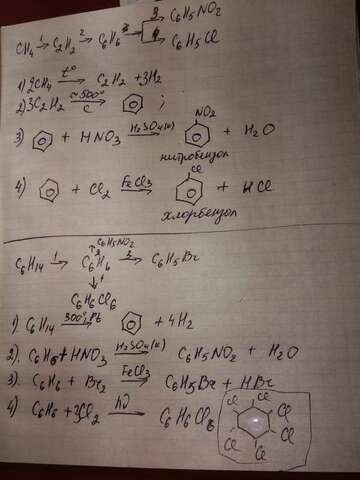 3 C6H5NO2
CH4 1→ C2H2 2→ C6H6
4 C6H5Cl
1) 2CH4 t°→ C2H2 + 3H2
2) 3C2H2 ~500° C→ ;
3) + HNO3 H2SO4(к)→ NO2 + H2O
нитробензол
4) + Cl2 FeCl3→ Cl + HCl
хлорбензол
C6H5NO2
C6H14 1→ C6H6 3→ C6H5Br
↓4
C6H6Cl6
1). C6H14 300°, Pt→ + 4H2
2). C6H6 + HNO3 H2SO4(к)→ C6H5NO2 + H2O
3). C6H6 + Br2 FeCl3→ C6H5Br + HBr
4) C6H6 + 3Cl2 hν→ C6H6Cl6 Cl Cl Cl Cl Cl Cl